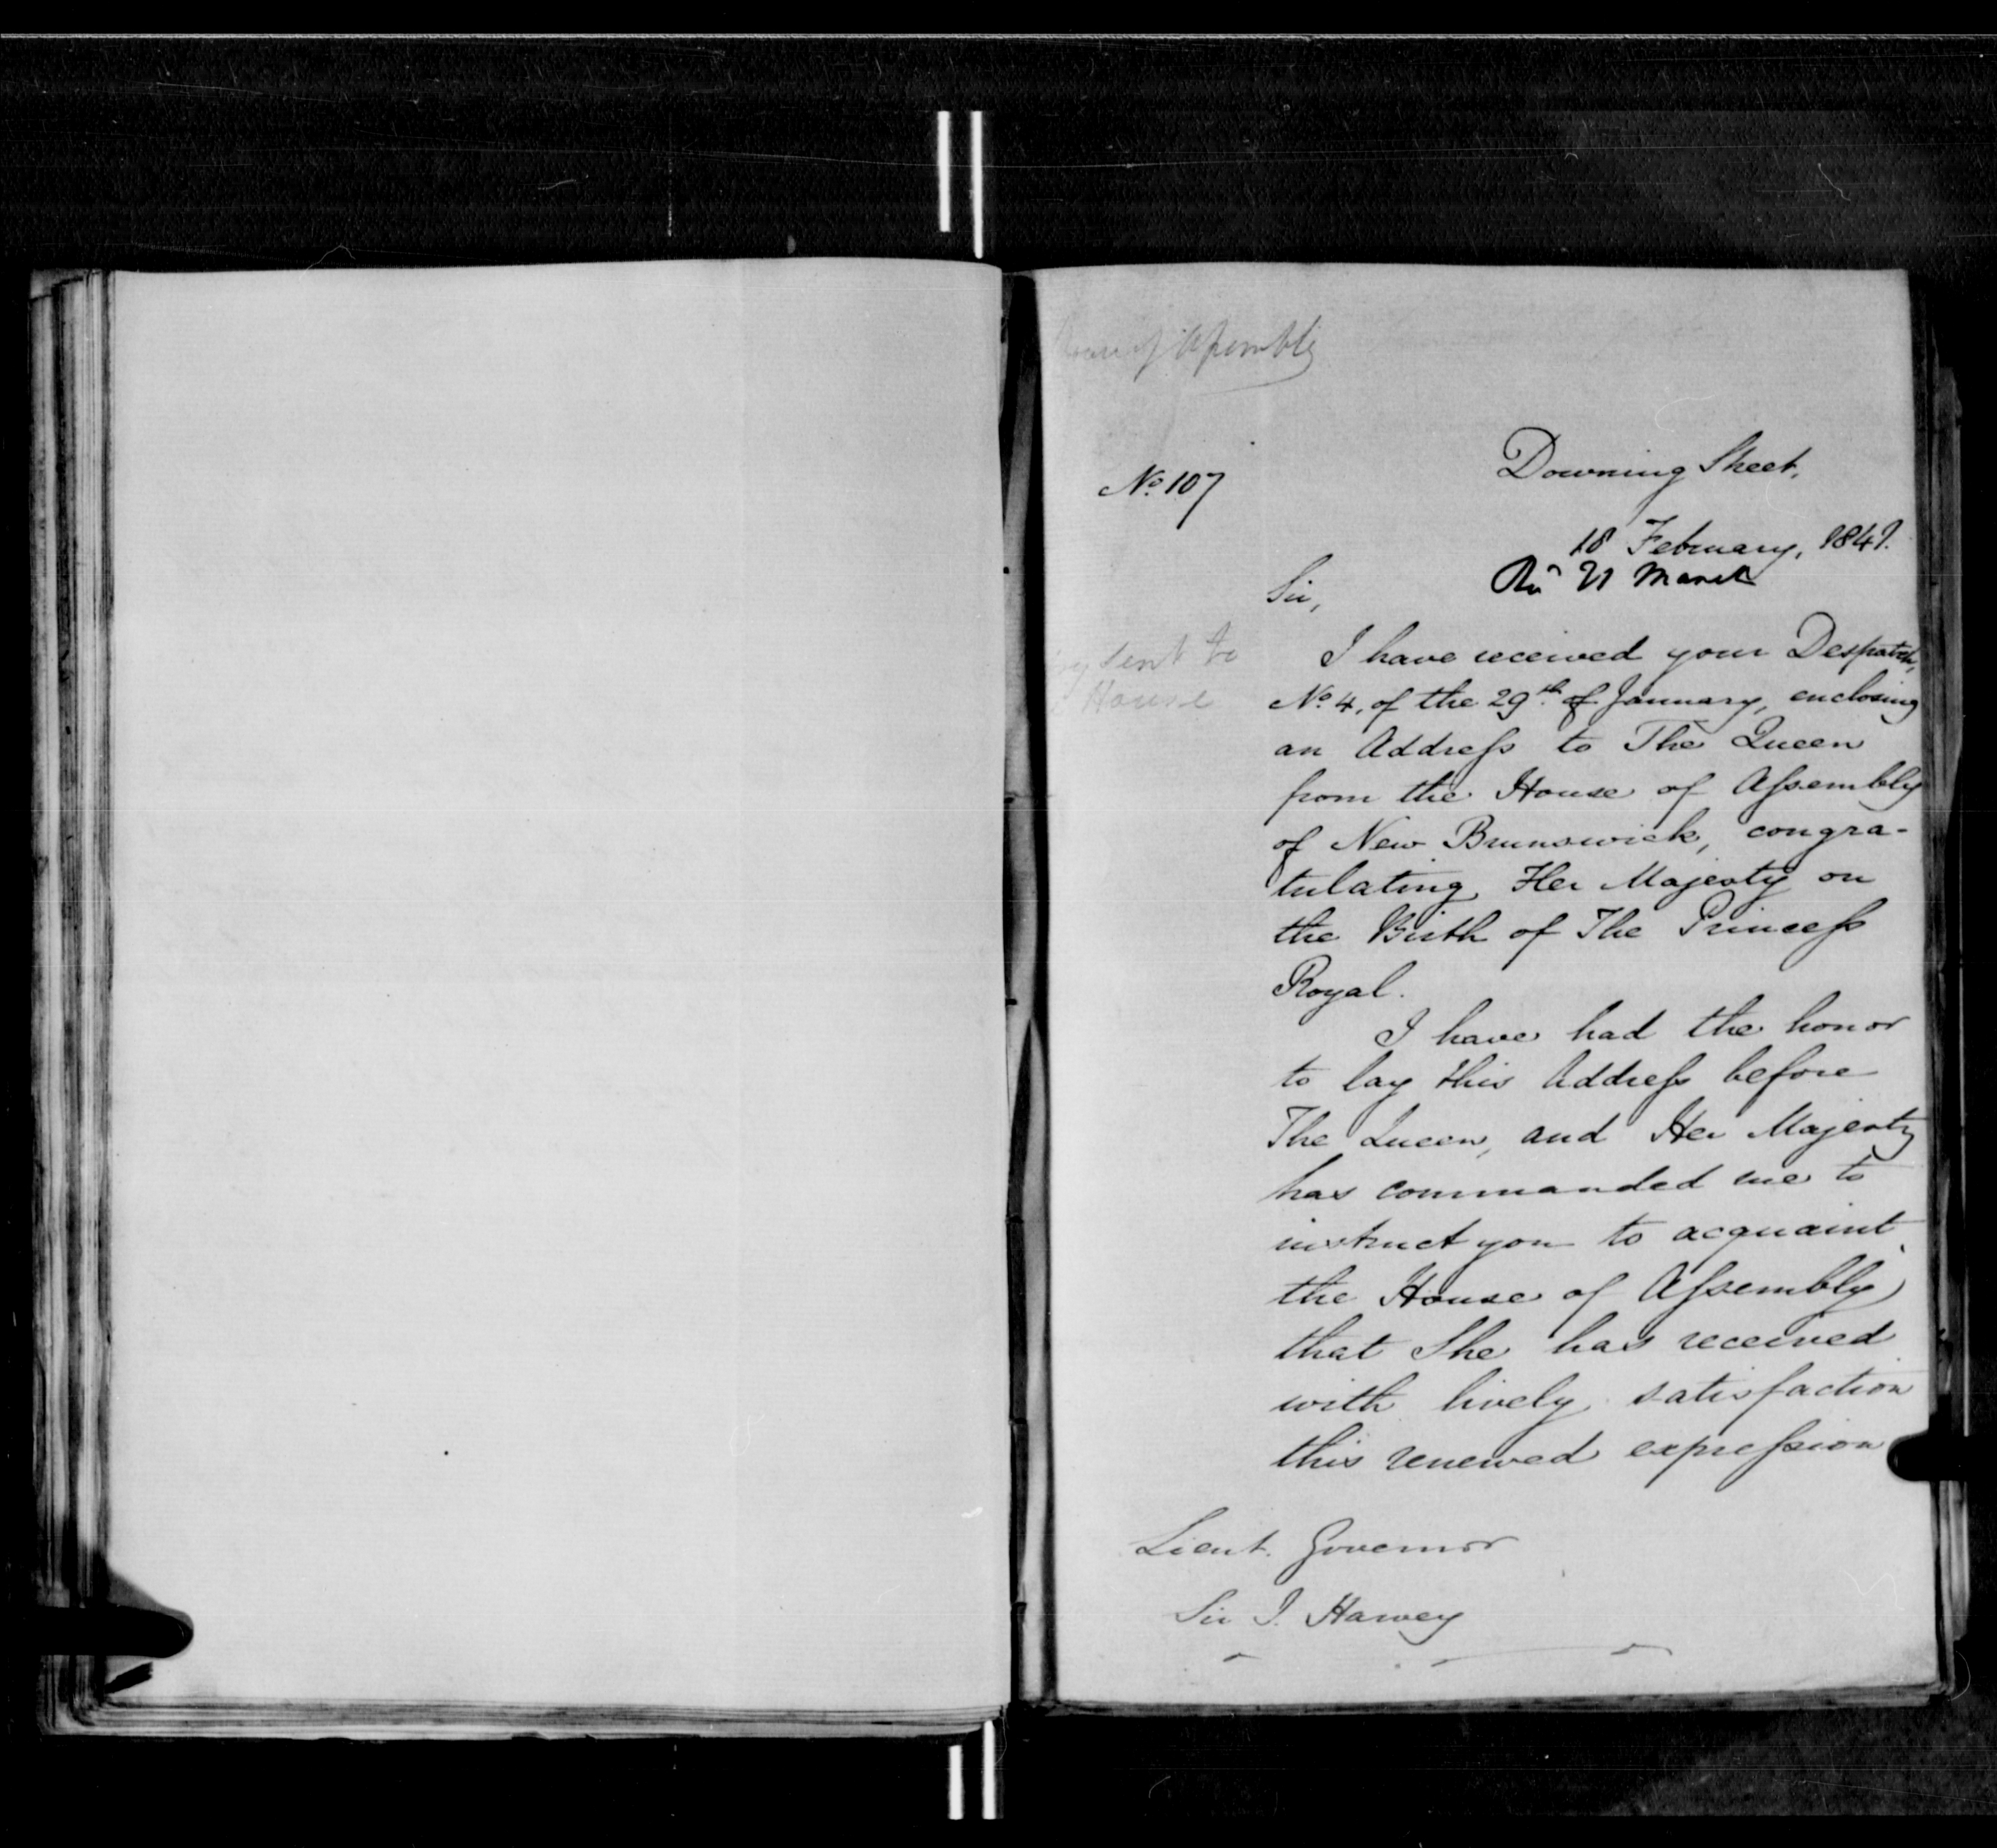 House of Assembly
No. 107
Downing Street,
18 February, 1841.
Sir,
21 March
sent to
House
I have received your Despatch,
No. 4, of the 29th. of January, enclosing
an Address to The Queen
from the House of Assembly
of New Brunswick, congra-
tulating Her Majesty on
the Birth of The Princess
Royal.
I have had the honor
to lay this Address before
The Queen, and Her Majesty
has commanded me to
instruct you to acquaint
the House of Assembly
that She has received
with lively satisfaction
this renewed expression
Lieut. Governor
Sir J. Harvey